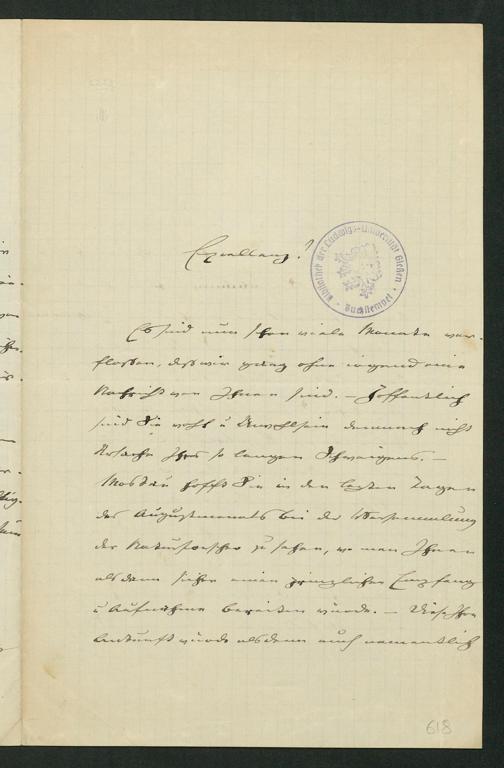 Excellenz!
Bibliothek der Ludwigs-Universität Gießen
Buchstempel
Es sind nun schon viele Monate ver-
flossen, daß wir ganz ohne irgend eine
Nachricht von Ihnen sind. – Hoffentlich
sind Sie wohl u Unwohlsein demnach nicht
Ursache Ihres so langen Schweigens. –
Moskau hofft Sie in den letzten Tagen
des Augustmonats bei der Versammlung
der Naturforscher zu sehen, wo man Ihnen
alsdann sicher einen prinzlichen Empfang
u Aufnahme bereiten würde. – Diese Ihre
Ankunft würde alsdann auch namentlich
618